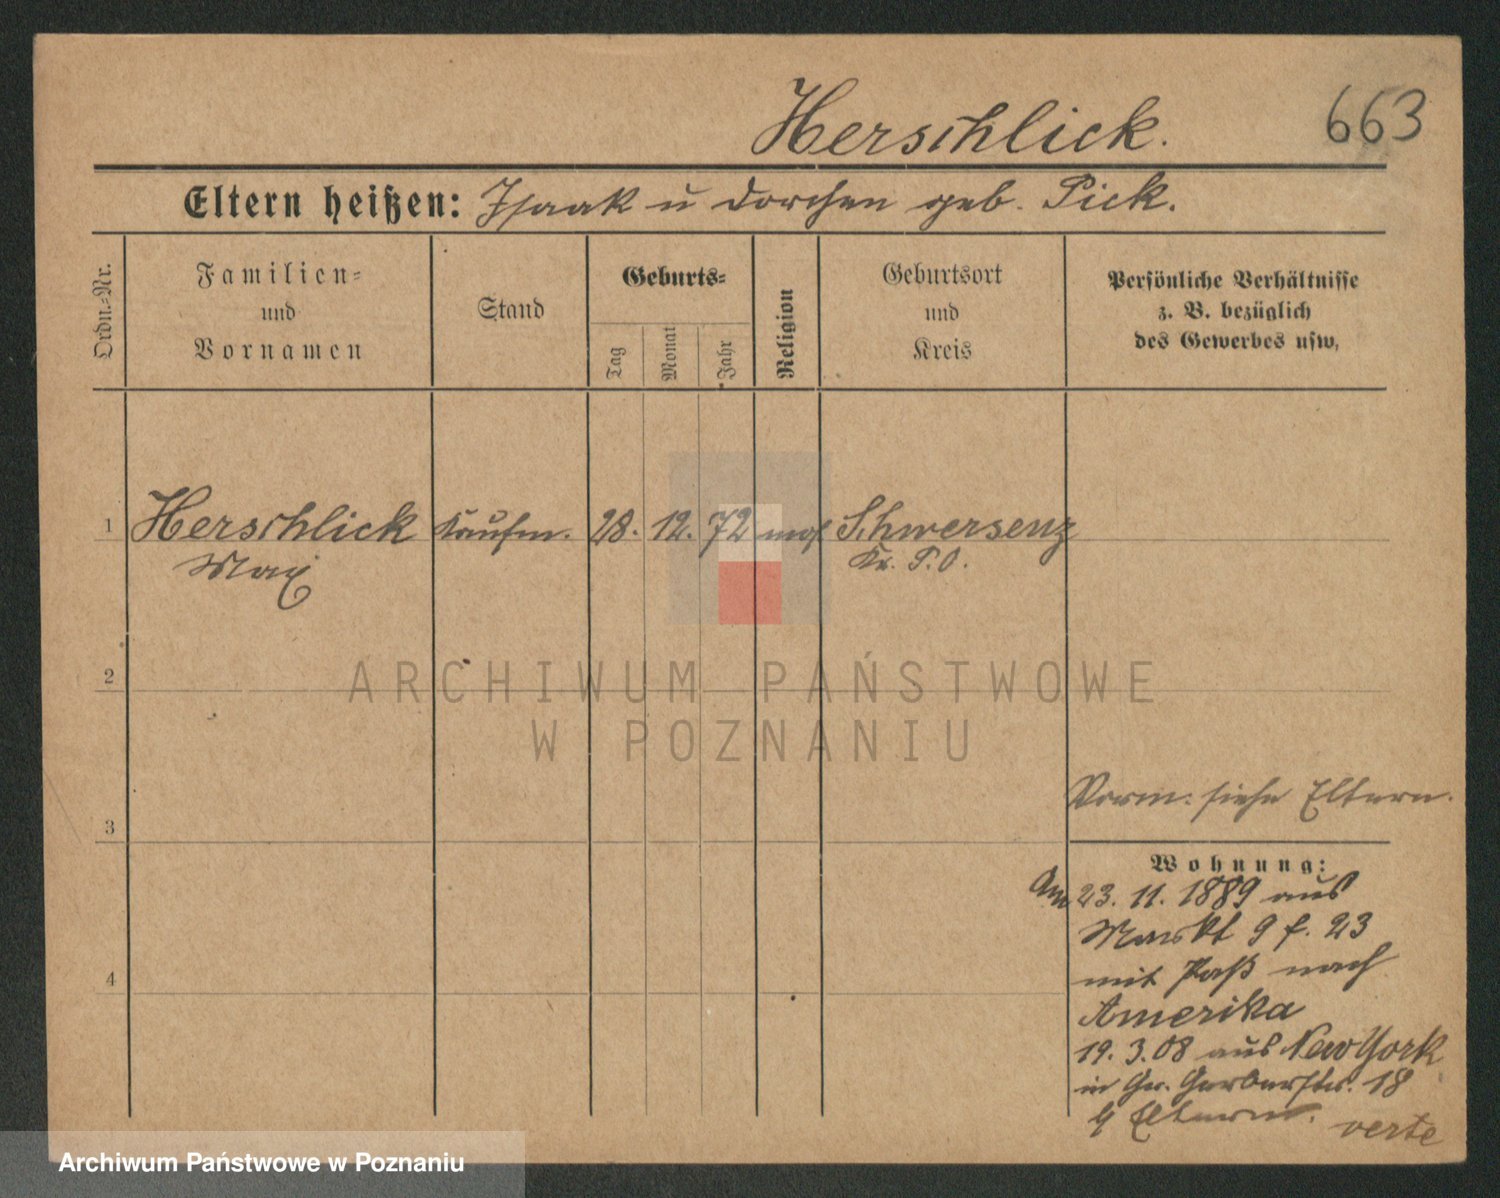 663
Herschlick.
Eltern heißen: Isaak u Dorchen geb. Pick.
Ordn.-Nr.
Familien-
und
Vornamen
Stand
Geburts-
Tag
Monat
Jahr
Religion
Geburtsort
und
Kreis
Persönliche Verhältnisse
z. B. bezüglich
des Gewerbes usw,
1 Herschlick Kaufm. 28. 12. 72 mos Schwersenz
Max Kr. P.O.
2
ARCHIWUM PAŃSTWOWE
W POZNANIU
Vorm: siehe Eltern.
3
Wohnung:
Am 23. 11. 1889 aus
Markt 9 f. 23
mit Paß nach
4
Amerika
19. 3. 08 aus New York
in Gr. Gerberstr. 18
b Eltern. verte
Archiwum Państwowe w Poznaniu